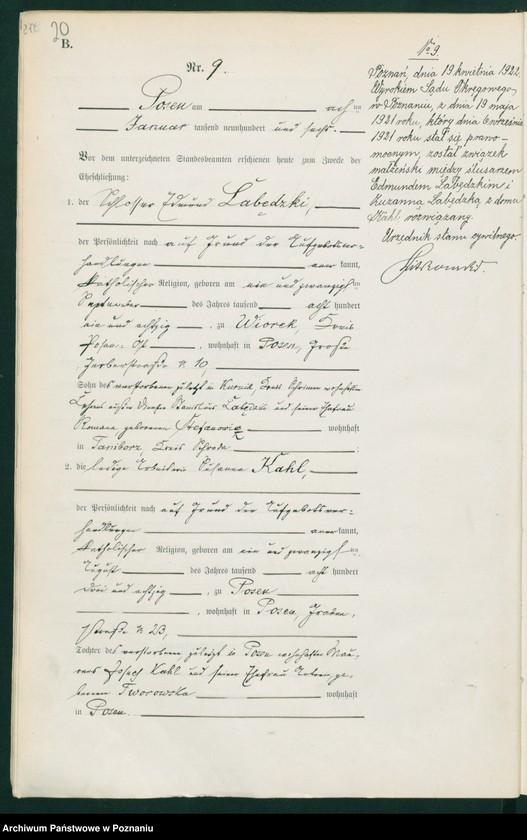 20
B.
Nr. 9.
Posen am acht
Januar tausend neunhundert und sechs.
Vor dem unterzeichneten Standesbeamten erschienen heute zum Zwecke der
Eheschließung:
1. der Schlosser Edmund Łabędzki,
der Persönlichkeit nach auf Grund der Aufgebotsver-
handlungen anerkannt,
katholischer Religion, geboren am ein und zwanzigsten
September des Jahres tausend acht hundert
ein und achtzig, zu Wiorek, Kreis
Posen-Ost, wohnhaft in Posen, Große
Gerberstraße N. 10,
Sohn des verstorbenen zuletzt in Kurnik, Kreis Schrimm wohnhaften
Stanislaus und seiner Ehefrau
Romana geborenen Stefanowicz wohnhaft
in Taniborz, Kreis Schroda;
2. die ledige Arbeiterin Susanna Kahl,
der Persönlichkeit nach auf Grund der Aufgebotsver-
handlungen anerkannt,
katholischer Religion, geboren am ein und zwanzigsten
August des Jahres tausend acht hundert
drei und achtzig, zu Posen
, wohnhaft in Posen, Graben-
straße N. 23,
Tochter des verstorbenen zuletzt in Posen wohnhaften Mau-
rers Joseph Kahl und seiner Ehefrau ge-
borenen Tworowska wohnhaft
in Posen.
No 9.
Poznań, dnia 19 kwietnia 1922.
Wyrokiem Sądu Okręgowego
w Poznaniu, z dnia 19 maja
1921 roku, który dnia 6 września
1921 roku stał się prawo-
mocnym, został związek
małżeński między ślusarzem
Edmundem Łabędzkim i
Zuzanną Łabędzką z domu
Kahl rozwiązany.
Urzędnik stanu cywilnego.
Archiwum Państwowe w Poznaniu